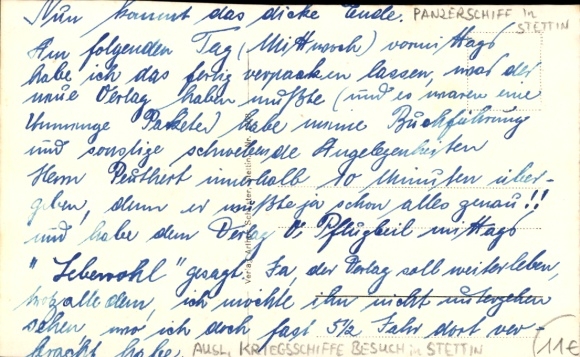 Nun kommt das dicke Ende. PANZERSCHIFF in STETTIN
Am folgenden Tag (Mittwoch) vormittags
habe ich das fertig verpacken lassen, was der
neue Verlag haben mußte (und es waren eine
Unmenge Pakete) habe meine Buchführung
und sonstige schwebende Angelegenheiten
Herrn Peuthert innerhalb 10 Minuten über-
geben, denn er wußte ja schon alles genau!!
und habe dem Verlag Pflugbeil mittags
"Lebewohl" gesagt. Ja, der Verlag soll weiterleben,
trotz alledem, ich möchte ihn nicht untergehen
sehen, wo ich doch fast 5½ Jahr dort ver-
bracht habe.
AUSL. KRIEGSSCHIFFE BESUCH in STETTIN
11€